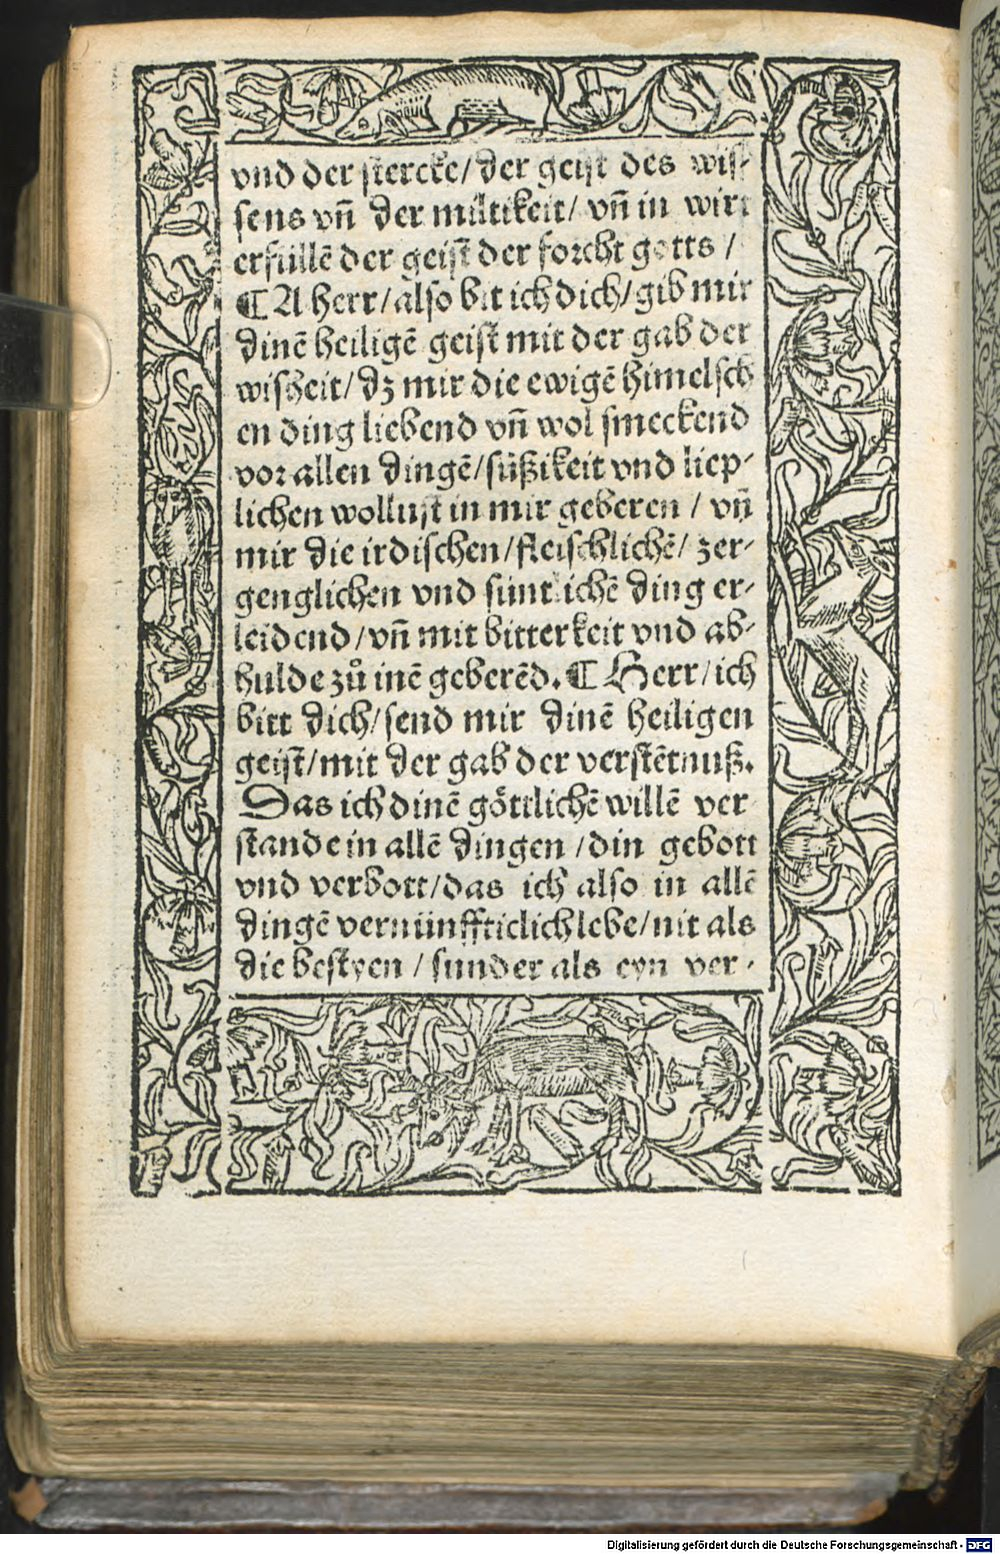 vnd der stercke/der geist des wis-
sens vñ der miltikeit/ vñ in wirt
erfüllē der geist der forcht gotts /
¶ A herr/also bit ich dich/gib mir
dinē heiligē geist mit der gab der
wisheit/ dz mir die ewigē himelsch
en ding liebend vñ wol smeckend
vor allen dingē/süßikeit vnd liep-
lichen wollust in mir geberen / vñ
mir die irdischen/fleischlichē/ zer-
genglichen vnd suntlichē ding er-
leidend/vñ mit bitterkeit vnd ab-
hulde zuͦ inē geberēd. ¶ Herr/ich
bitt dich/send mir dinē heiligen
geist/mit der gab der verstētnuß.
Das ich dinē göttlichē willē ver
stande in allē dingen /din gebott
vnd verbott/das ich also in allē
dingē vernünffticlich lebe/nit als
die bestyen / sunder als eyn ver-
Digitalisierung gefördert durch die Deutsche Forschungsgemeinschaft - DFG